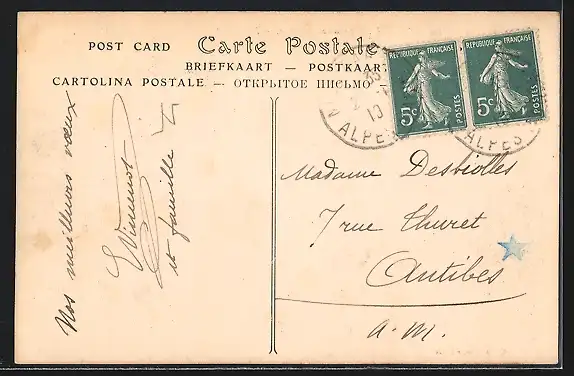 POST CARD Carte Postale
BRIEFKAART — POSTKAART
CARTOLINA POSTALE — ОТКРЫТОЕ ПИСЬМО
RÉPUBLIQUE FRANÇAISE
5c
POSTES
RÉPUBLIQUE FRANÇAISE
5c
POSTES
ALPES
ALPES
Nos meilleurs vœux
et famille
Madame Desbiolles
7 rue Thuret
Antibes
A. M.